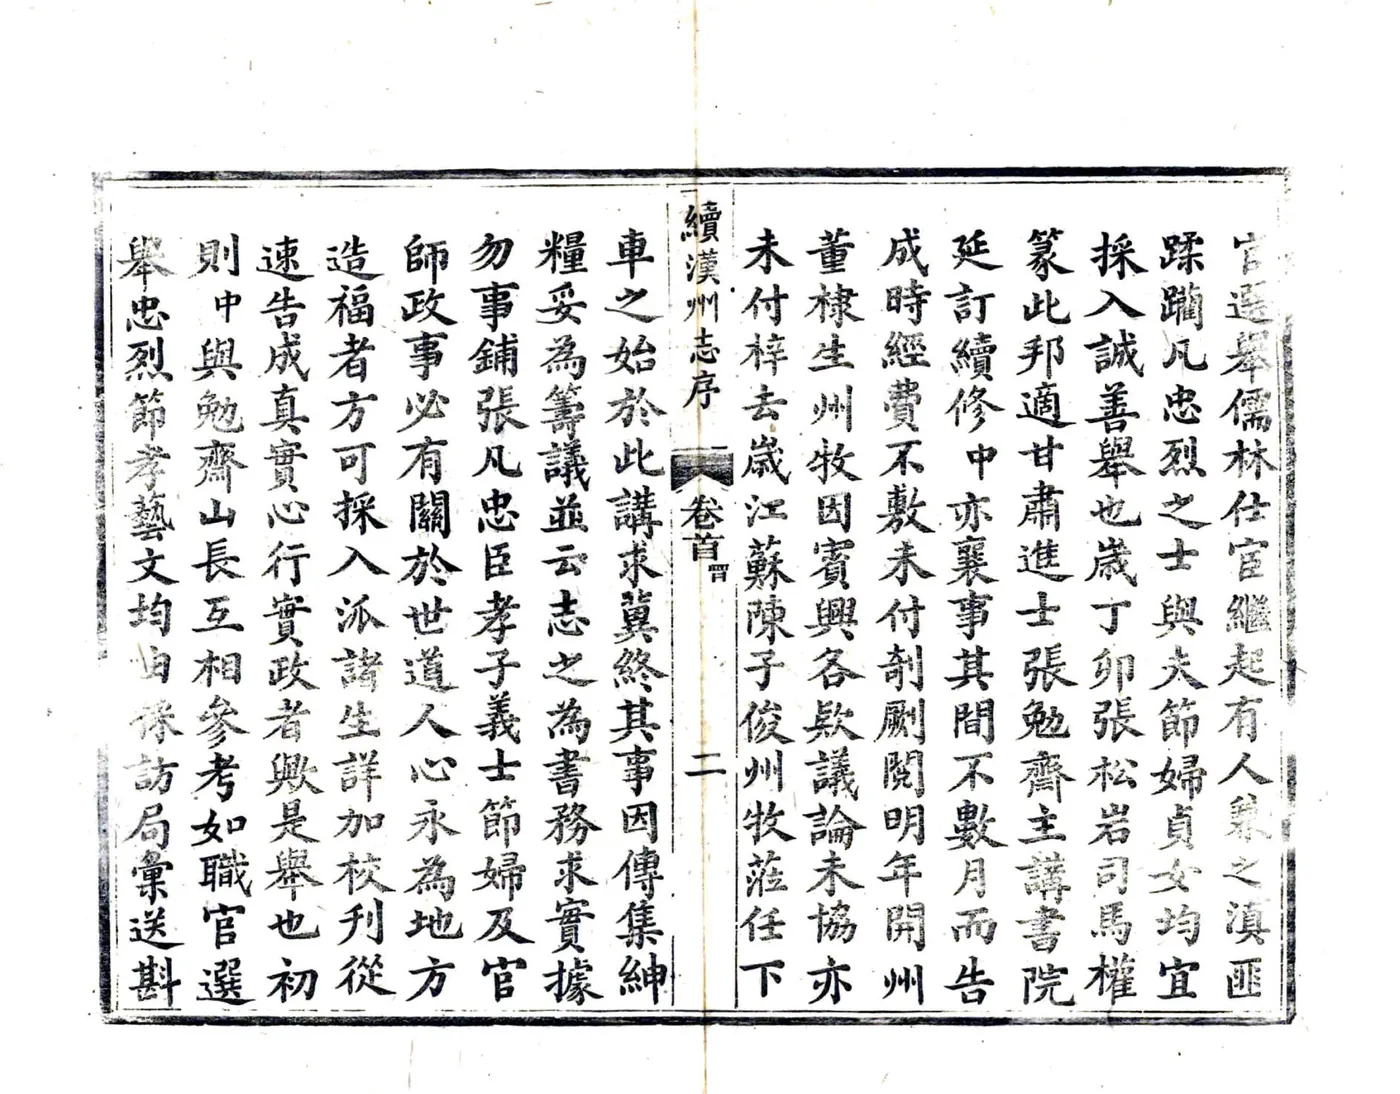 官選舉儒林仕宦繼起有人兼之滇匪
蹂躪凡忠烈之士與夫節婦貞女均宜
採入誠善舉也歲丁卯張松岩司馬權
篆此邦適甘肅進士張勉齋主講書院
延訂續修中亦襄事其間不數月而告
成時經費不敷未付剞劂閱明年開州
董棣生州牧因賓興各欵議論未協亦
未付梓去歲江蘇陳子俊州牧蒞任下
續漢州志序 卷首 二
車之始於此講求冀終其事因傳集紳
糧妥為籌議並云志之為書務求實據
勿事鋪張凡忠臣孝子義士節婦及官
師政事必有關於世道人心永為地方
造福者方可採入派諸生詳加校刊從
速告成真實心行實政者歟是舉也初
則中與勉齋山長互相參考如職官選
舉忠烈節孝藝文均由採訪局彙送斟